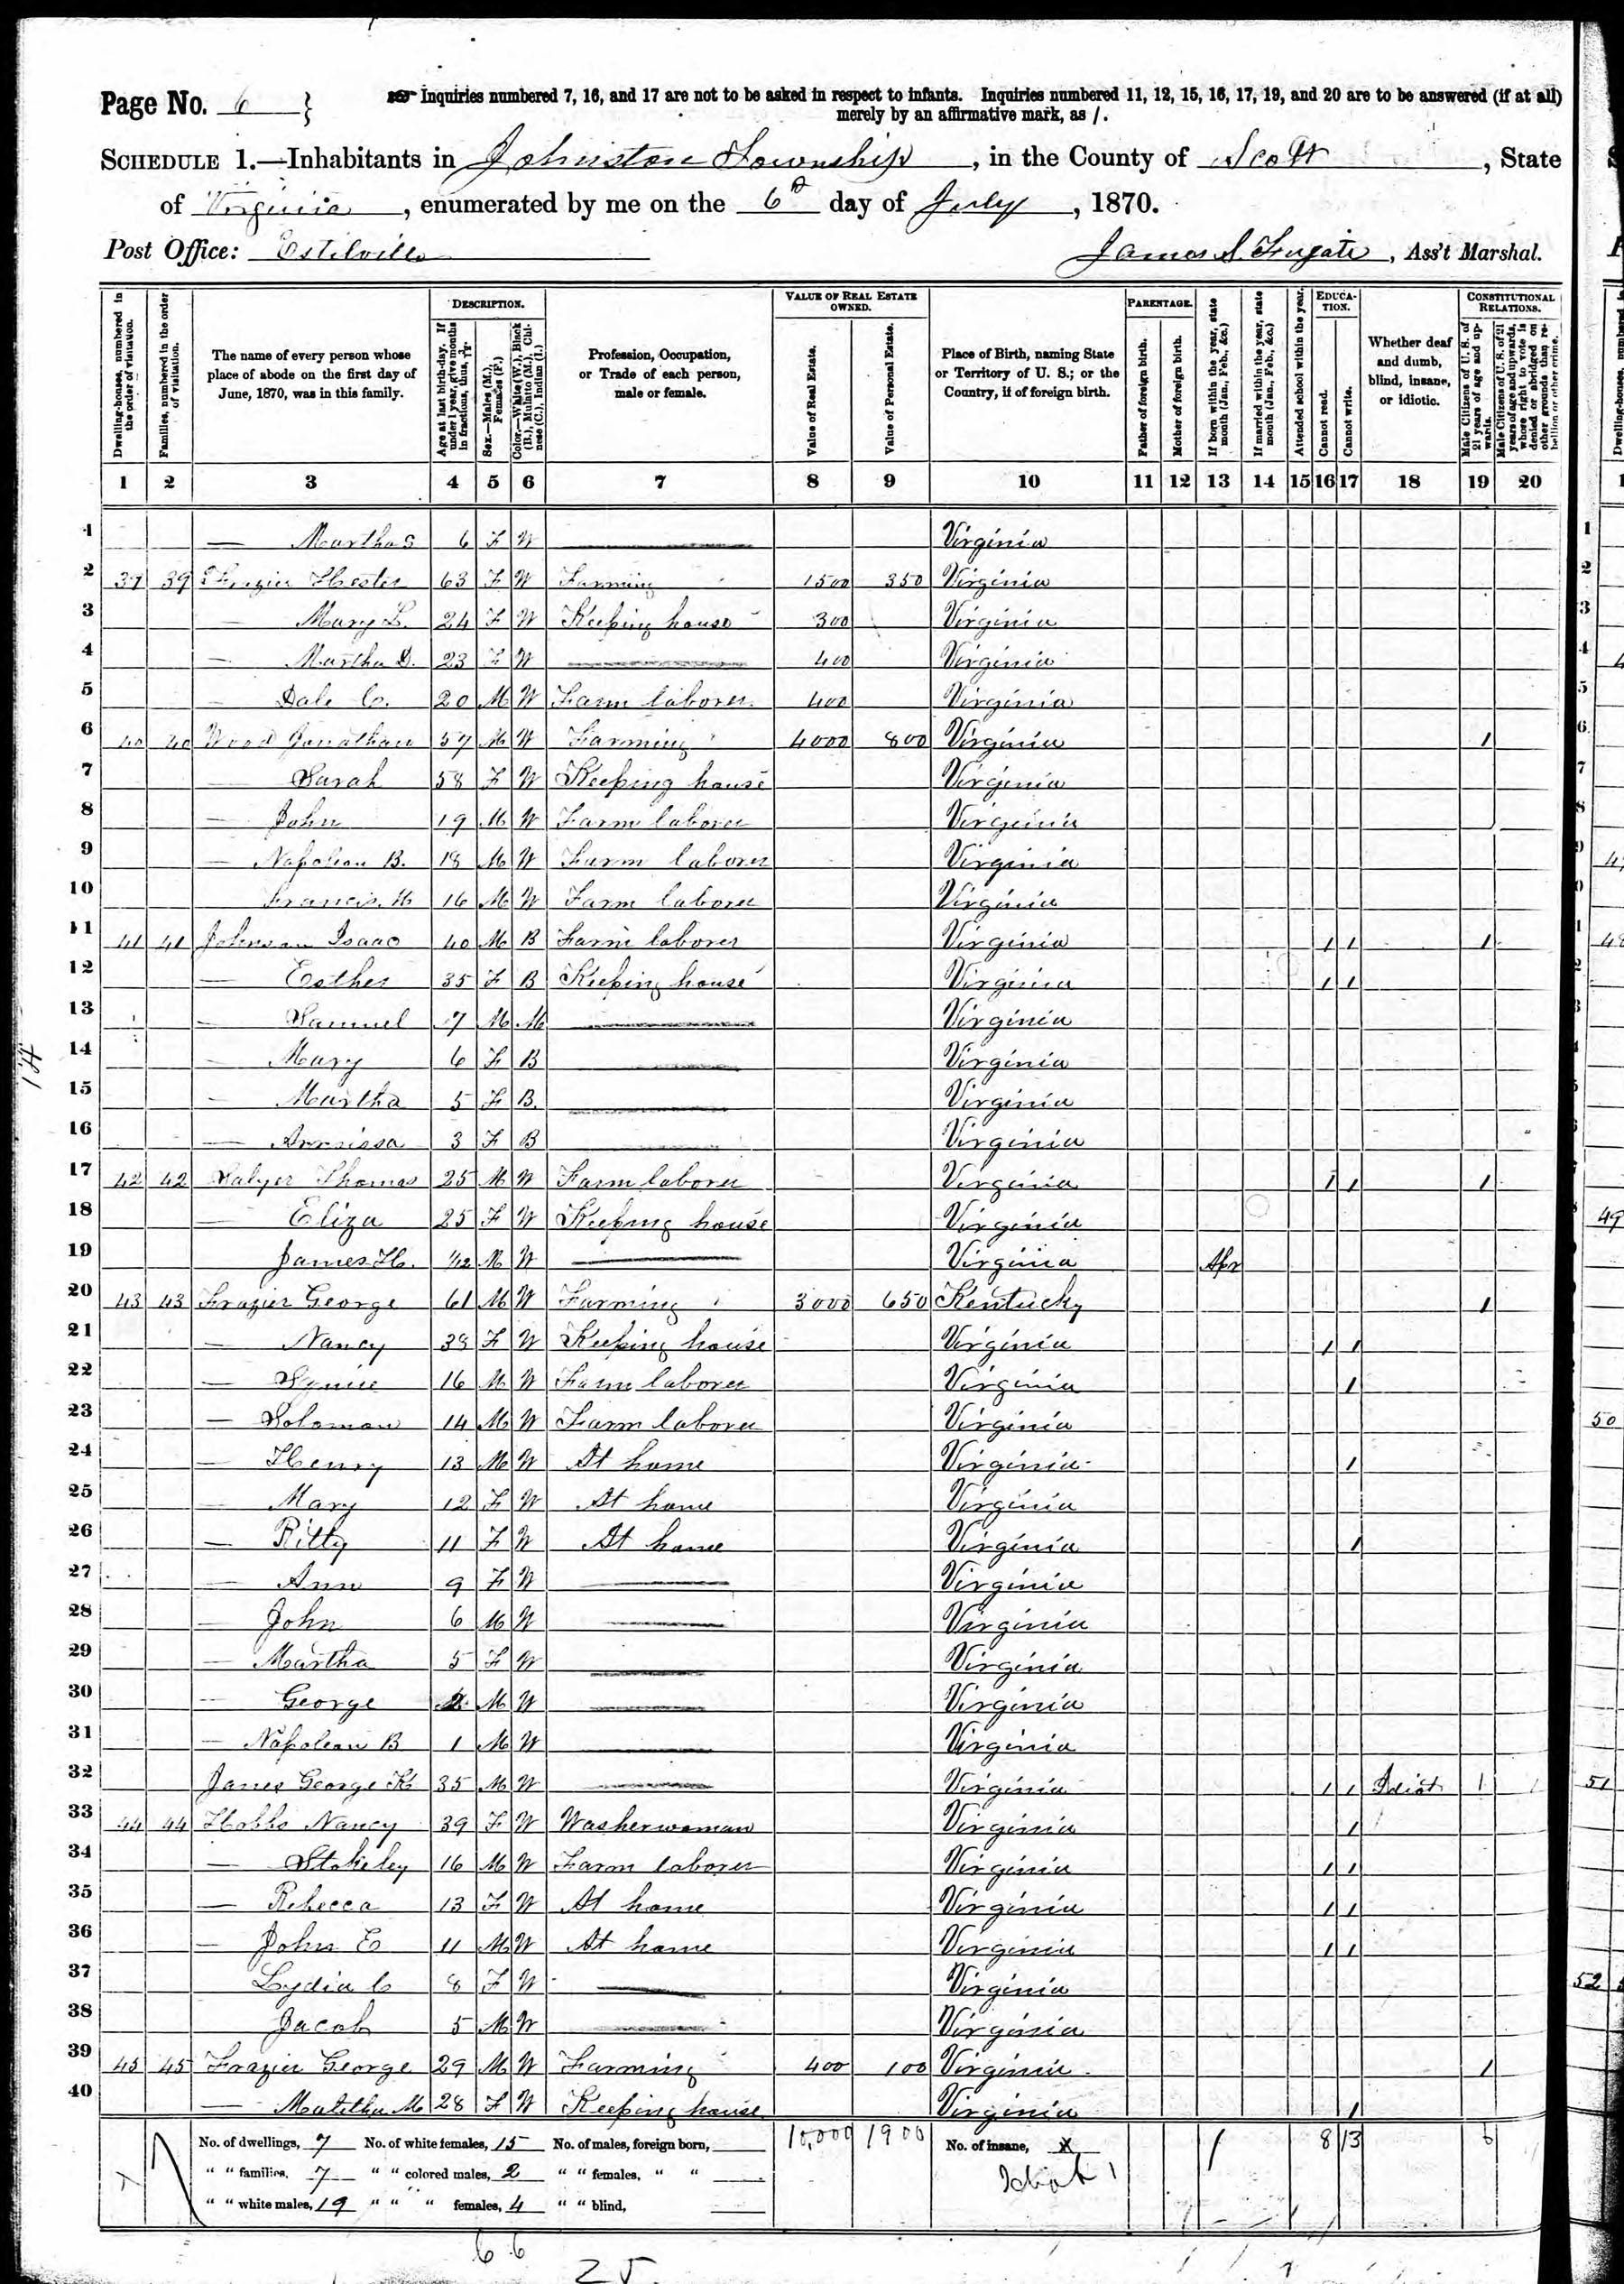 Page No. 6 }
Inquiries numbered 7, 16, and 17 are not to be asked in respect to infants. Inquiries numbered 11, 12, 15, 16, 17, 19, and 20 are to be answered (if at all)
merely by an affirmative mark, as /.
SCHEDULE 1.—Inhabitants in Johnston Township, in the County of Scott, State
of Virginia, enumerated by me on the 6th day of July, 1870.
Post Office: Estilville James S. Fugate, Ass't Marshal.
Dwelling-houses, numbered in the order of visitation.
Families, numbered in the order of visitation.
The name of every person whose place of abode on the first day of June, 1870, was in this family.
DESCRIPTION.
Age at last birth-day. If under 1 year, give months in fractions, thus, 3/12.
Sex.—Males (M.), Females (F.)
Color.—White (W.), Black (B.), Mulatto (M.), Chinese (C.), Indian (I.)
Profession, Occupation, or Trade of each person, male or female.
VALUE OF REAL ESTATE OWNED.
Value of Real Estate.
Value of Personal Estate.
Place of Birth, naming State or Territory of U. S.; or the Country, if of foreign birth.
PARENTAGE.
Father of foreign birth.
Mother of foreign birth.
If born within the year, state month (Jan., Feb., &c.)
If married within the year, state month (Jan., Feb., &c.)
Attended school within the year.
EDUCATION.
Cannot read.
Cannot write.
Whether deaf and dumb, blind, insane, or idiotic.
CONSTITUTIONAL RELATIONS.
Male Citizens of U. S. of 21 years of age and upwards.
Male Citizens of U. S. of 21 years of age and upwards, whose right to vote is denied or abridged on other grounds than rebellion or other crime.
1 2 3 4 5 6 7 8 9 10 11 12 13 14 15 16 17 18 19 20
1 — Martha S 6 F W — Virginia
2 39 39 Frazier Hester 63 F W Farming 1500 350 Virginia
3 — Mary L. 24 F W Keeping house 300 Virginia
4 — Martha D. 23 F W — 400 Virginia
5 — Dale C. 20 M W Farm laborer 400 Virginia
6 40 40 Wood Jonathan 57 M W Farming 4000 800 Virginia 1
7 — Sarah 58 F W Keeping house Virginia
8 — John 19 M W Farm laborer Virginia
9 — Napoleon B. 18 M W Farm laborer Virginia
10 Francis 16 M W Farm laborer Virginia
11 41 41 Johnson Isaac 40 M B Farm laborer Virginia 1 1 1
12 — Esther 35 F B Keeping house Virginia 1 1
13 — Samuel 7 M M — Virginia
14 — Mary 6 F B — Virginia
15 — Martha 5 F B. — Virginia
16 — 3 F B Virginia
17 42 42 Salyer Thomas 25 M W Farm laborer Virginia 1 1 1
18 — Eliza 25 F W Keeping house Virginia
19 James H. M W — Virginia Apr
20 43 43 Frazier George 61 M W Farming 3000 650 Kentucky 1
21 — Nancy 38 F W Keeping house Virginia 1 1
22 — 16 M W Farm laborer Virginia 1
23 — Solomon 14 M W Farm laborer Virginia
24 — Henry 13 M W At home Virginia 1
25 — Mary 12 F W At home Virginia
26 — 11 F W At home Virginia 1
27 — Ann 9 F W — Virginia
28 — John 6 M W — Virginia
29 — Martha 5 F W — Virginia
30 — George 2 M W — Virginia
31 — Napoleon B 1 M W — Virginia
32 George K 35 M W — Virginia 1 1 Idiot 1 1
33 44 44 Hobbs Nancy 39 F W Washerwoman Virginia 1
34 — Stokeley 16 M W Farm laborer Virginia 1 1
35 — Rebecca 13 F W At home Virginia 1 1
36 — John E 11 M W At home Virginia 1 1
37 Lydia C 8 F W — Virginia
38 Jacob 5 M W — Virginia
39 45 45 Frazier George 29 M W Farming 400 100 Virginia 1
40 — M 28 F W Keeping house Virginia 1
No. of dwellings, 7 No. of white females, 15 No. of males, foreign born, 10,000 1900 No. of insane, 1 8 13 6
" " families, 7 " " colored males, 2 " " females, " " Idiot 1
" " white males, 19 " " " females, 4 " " blind,
6 6
25
14